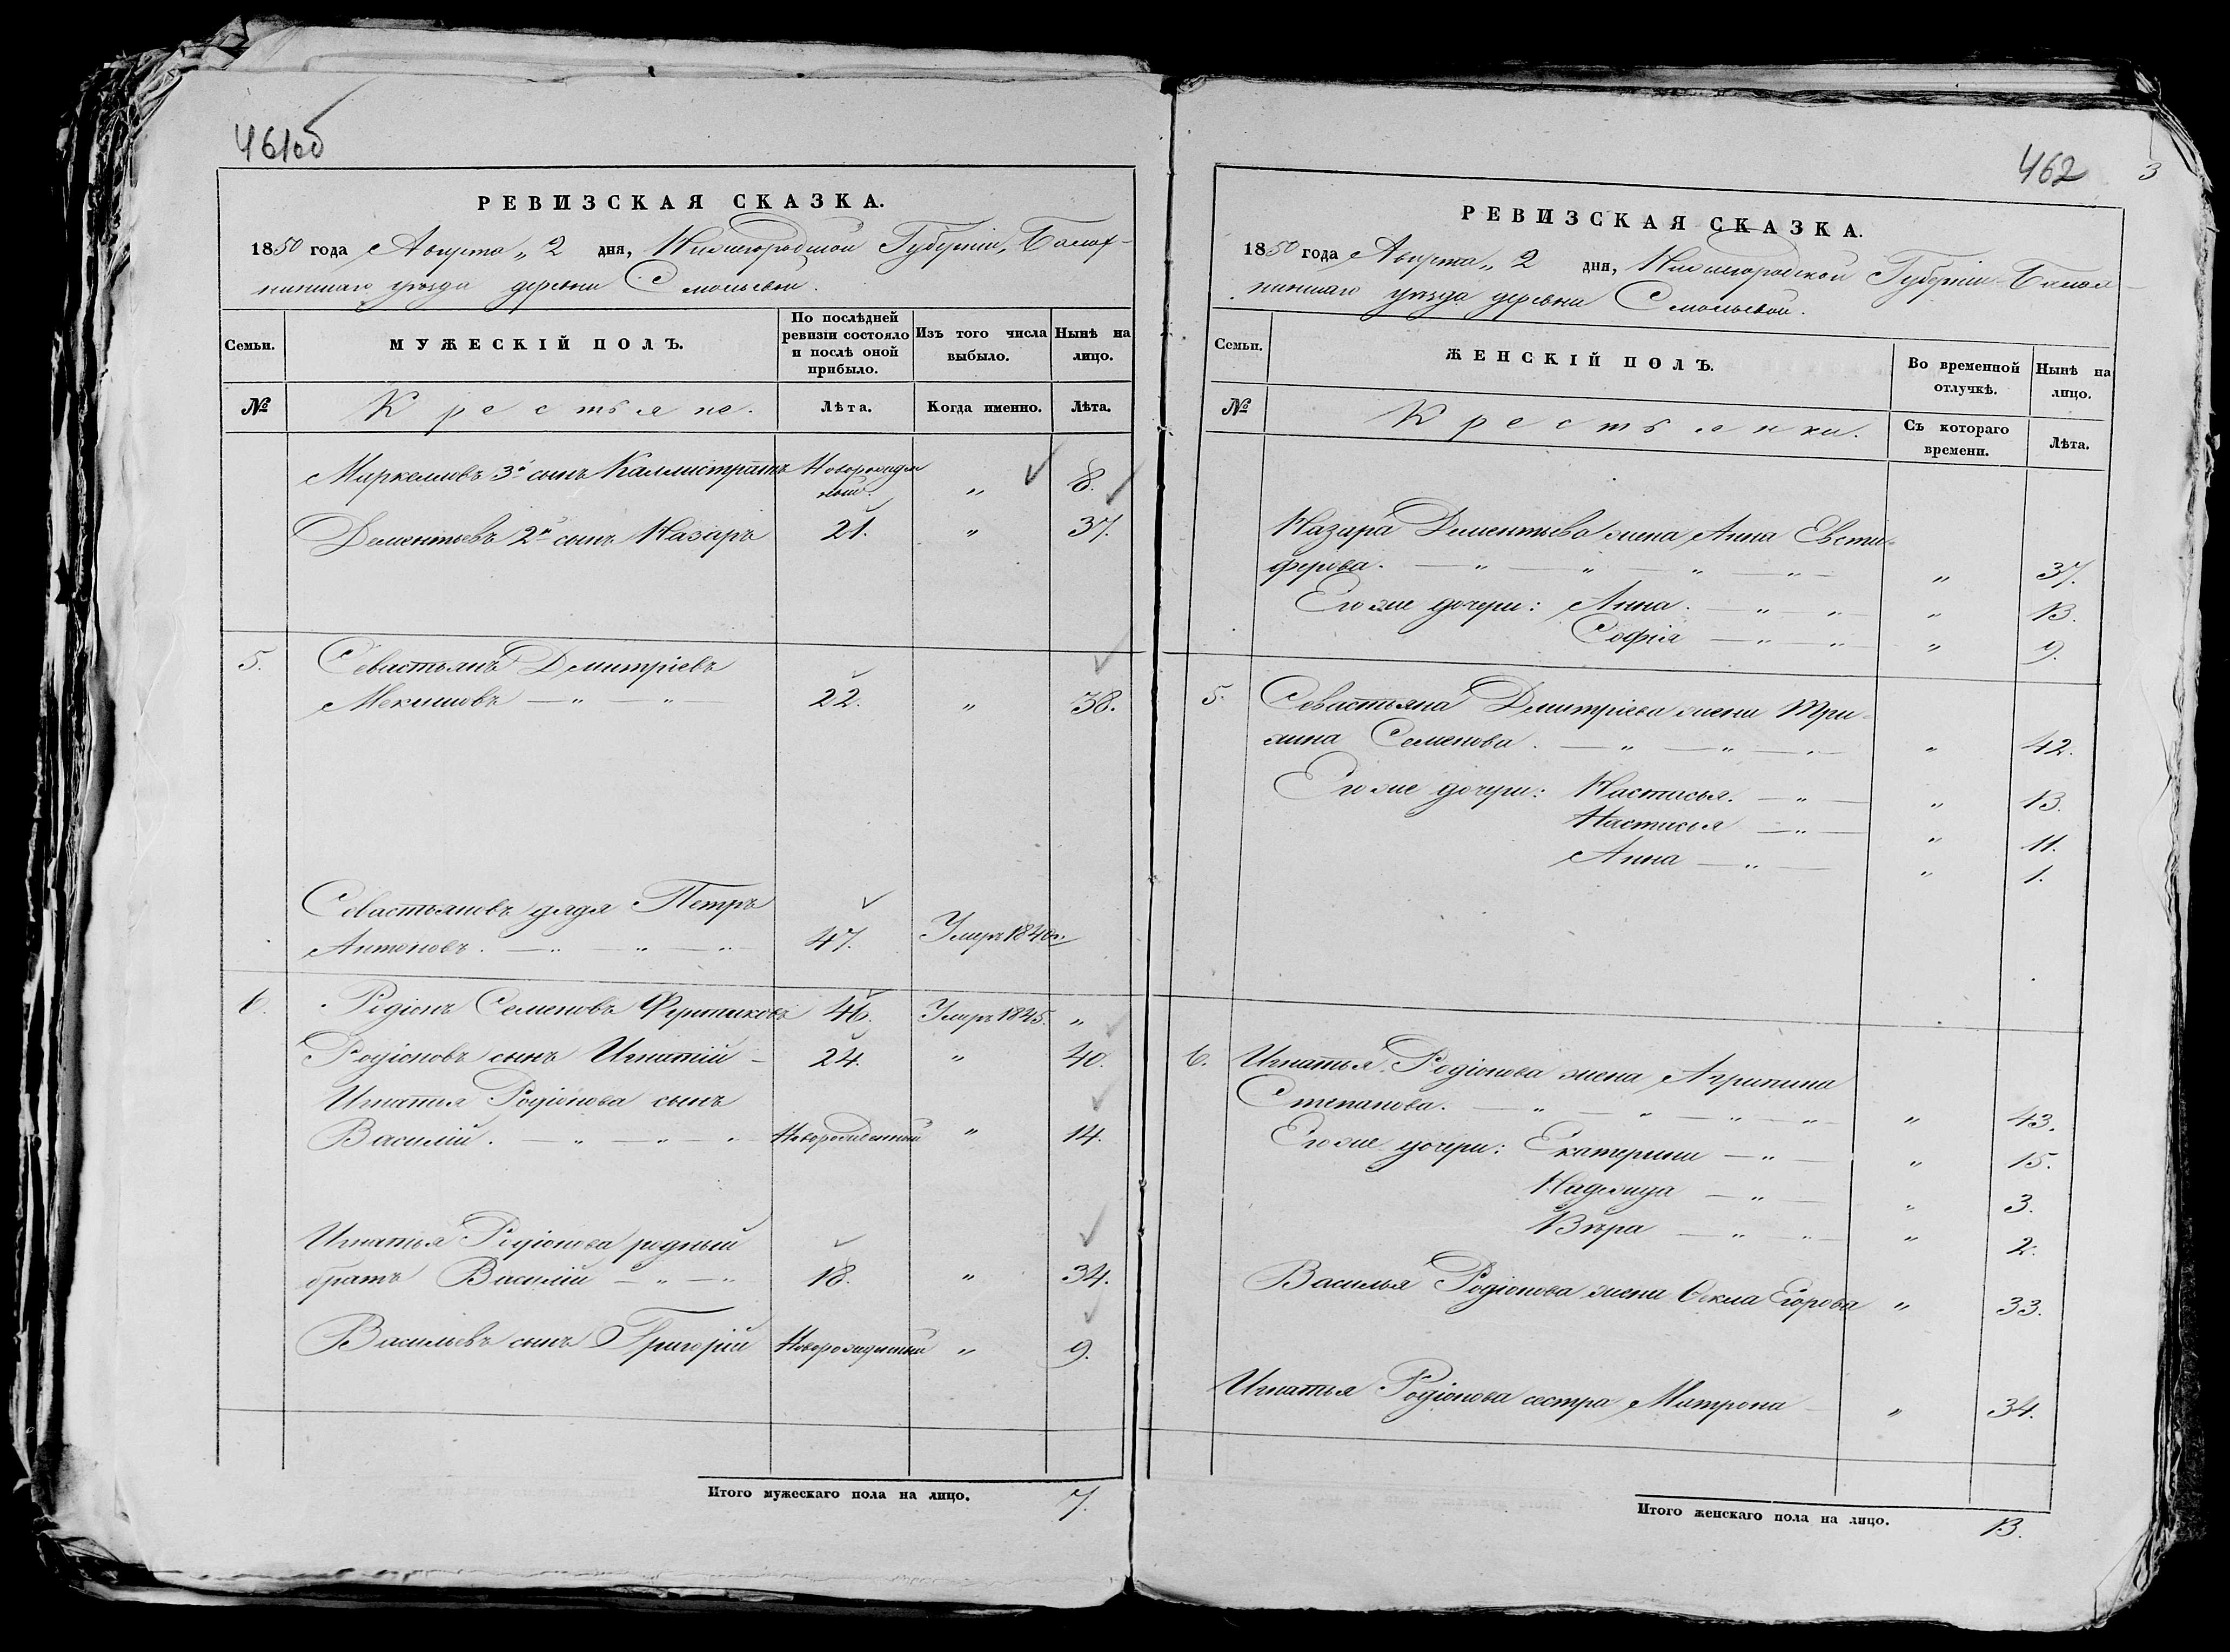 461об
РЕВИЗСКАЯ СКАЗКА.
1850 года Августа „ 2 дня, Нижегородской Губерніи, Балах-
нинскаго уезда деревни Смольевой.
Семьи.
МУЖЕСКІЙ ПОЛЪ.
По послѣдней
ревизіи состояло
и послѣ оной
прибыло.
Изъ того числа
выбыло.
Нынѣ на
лицо.
№
Крестьяне.
Лѣта.
Когда именно.
Лѣта.
3й сынъ Каллистратъ Новорожден
ный. „ 8.
Дементьевъ 2й сынъ Назаръ 21. „ 37.
5. Севастьянъ Дмитріевъ
22. „ 38.
Севастьяновъ дядя Петръ
Антоновъ. — „ — „ — „ 47. Умеръ 1840г.
6. Родіонъ Семеновъ 46. Умеръ 1845. „
Родіоновъ сынъ Игнатій — 24. „ 40.
Игнатья Родіонова сынъ
Василій. — „ — „ — „ Новорожденный „ 14.
Игнатья Родіонова родный
братъ Василій — „ — „ 18. „ 34.
Васильевъ сынъ Григорій Новорожденный „ 9.
Итого мужескаго пола на лицо. 7.
462 3
РЕВИЗСКАЯ СКАЗКА.
1850 года Августа „ 2 дня, Нижегородской Губерніи Балах-
нинскаго уезда деревни Смольевой.
Семьи.
ЖЕНСКІЙ ПОЛЪ.
Во временной
отлучкѣ.
Нынѣ на
лицо.
№
Крестьянки.
Съ котораго
времени.
Лѣта.
Назара Дементьева жена Анна Евсти-
ферова. — „ — „ — „ — „ — „ 37.
Его же дочери: Анна. — „ — „ — „ 13.
Софія — „ — „ — „ 9.
5. Севастьяна Дмитріева жена
Семенова. — „ — „ — „ — „ 42.
Его же дочери: Настасья. — „ — „ 13.
Настасья — „ — „ 11.
Анна — „ — „ 1.
6. Игнатья Родіонова жена Агрипина
Степанова. — „ — „ — „ — „ — „ 43.
Его же дочери: Екатерина — „ — „ 15.
Надежда — „ — „ 3.
Вѣра — „ — „ — „ 2.
Василья Родіонова жена Ѳекла Егорова „ 33.
Игнатья Родіонова сестра Матрона — „ 34.
Итого женскаго пола на лицо. 13.